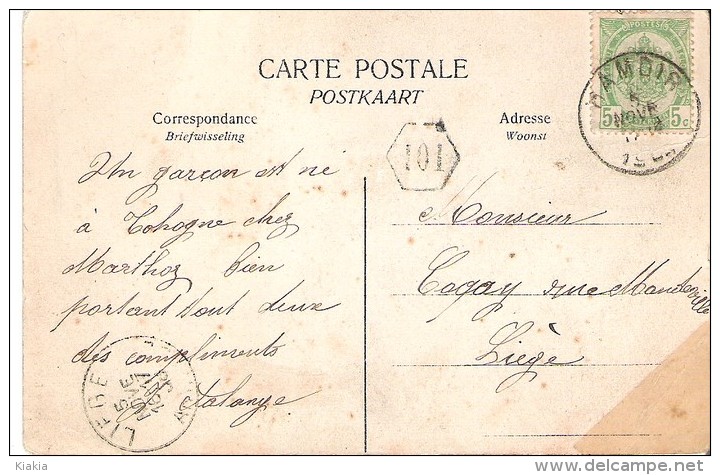 CARTE POSTALE
POSTKAART
Correspondance
Briefwisseling
Adresse
Woonst
POSTES
5 5c
5
NOVE
101
Un garçon est né
à Tohogne chez
Marthoz bien
portant tout deux
des compliments
Monsieur
rue Mandeville
Liège
5
NOVE
Kiakia
www.delcampe.net